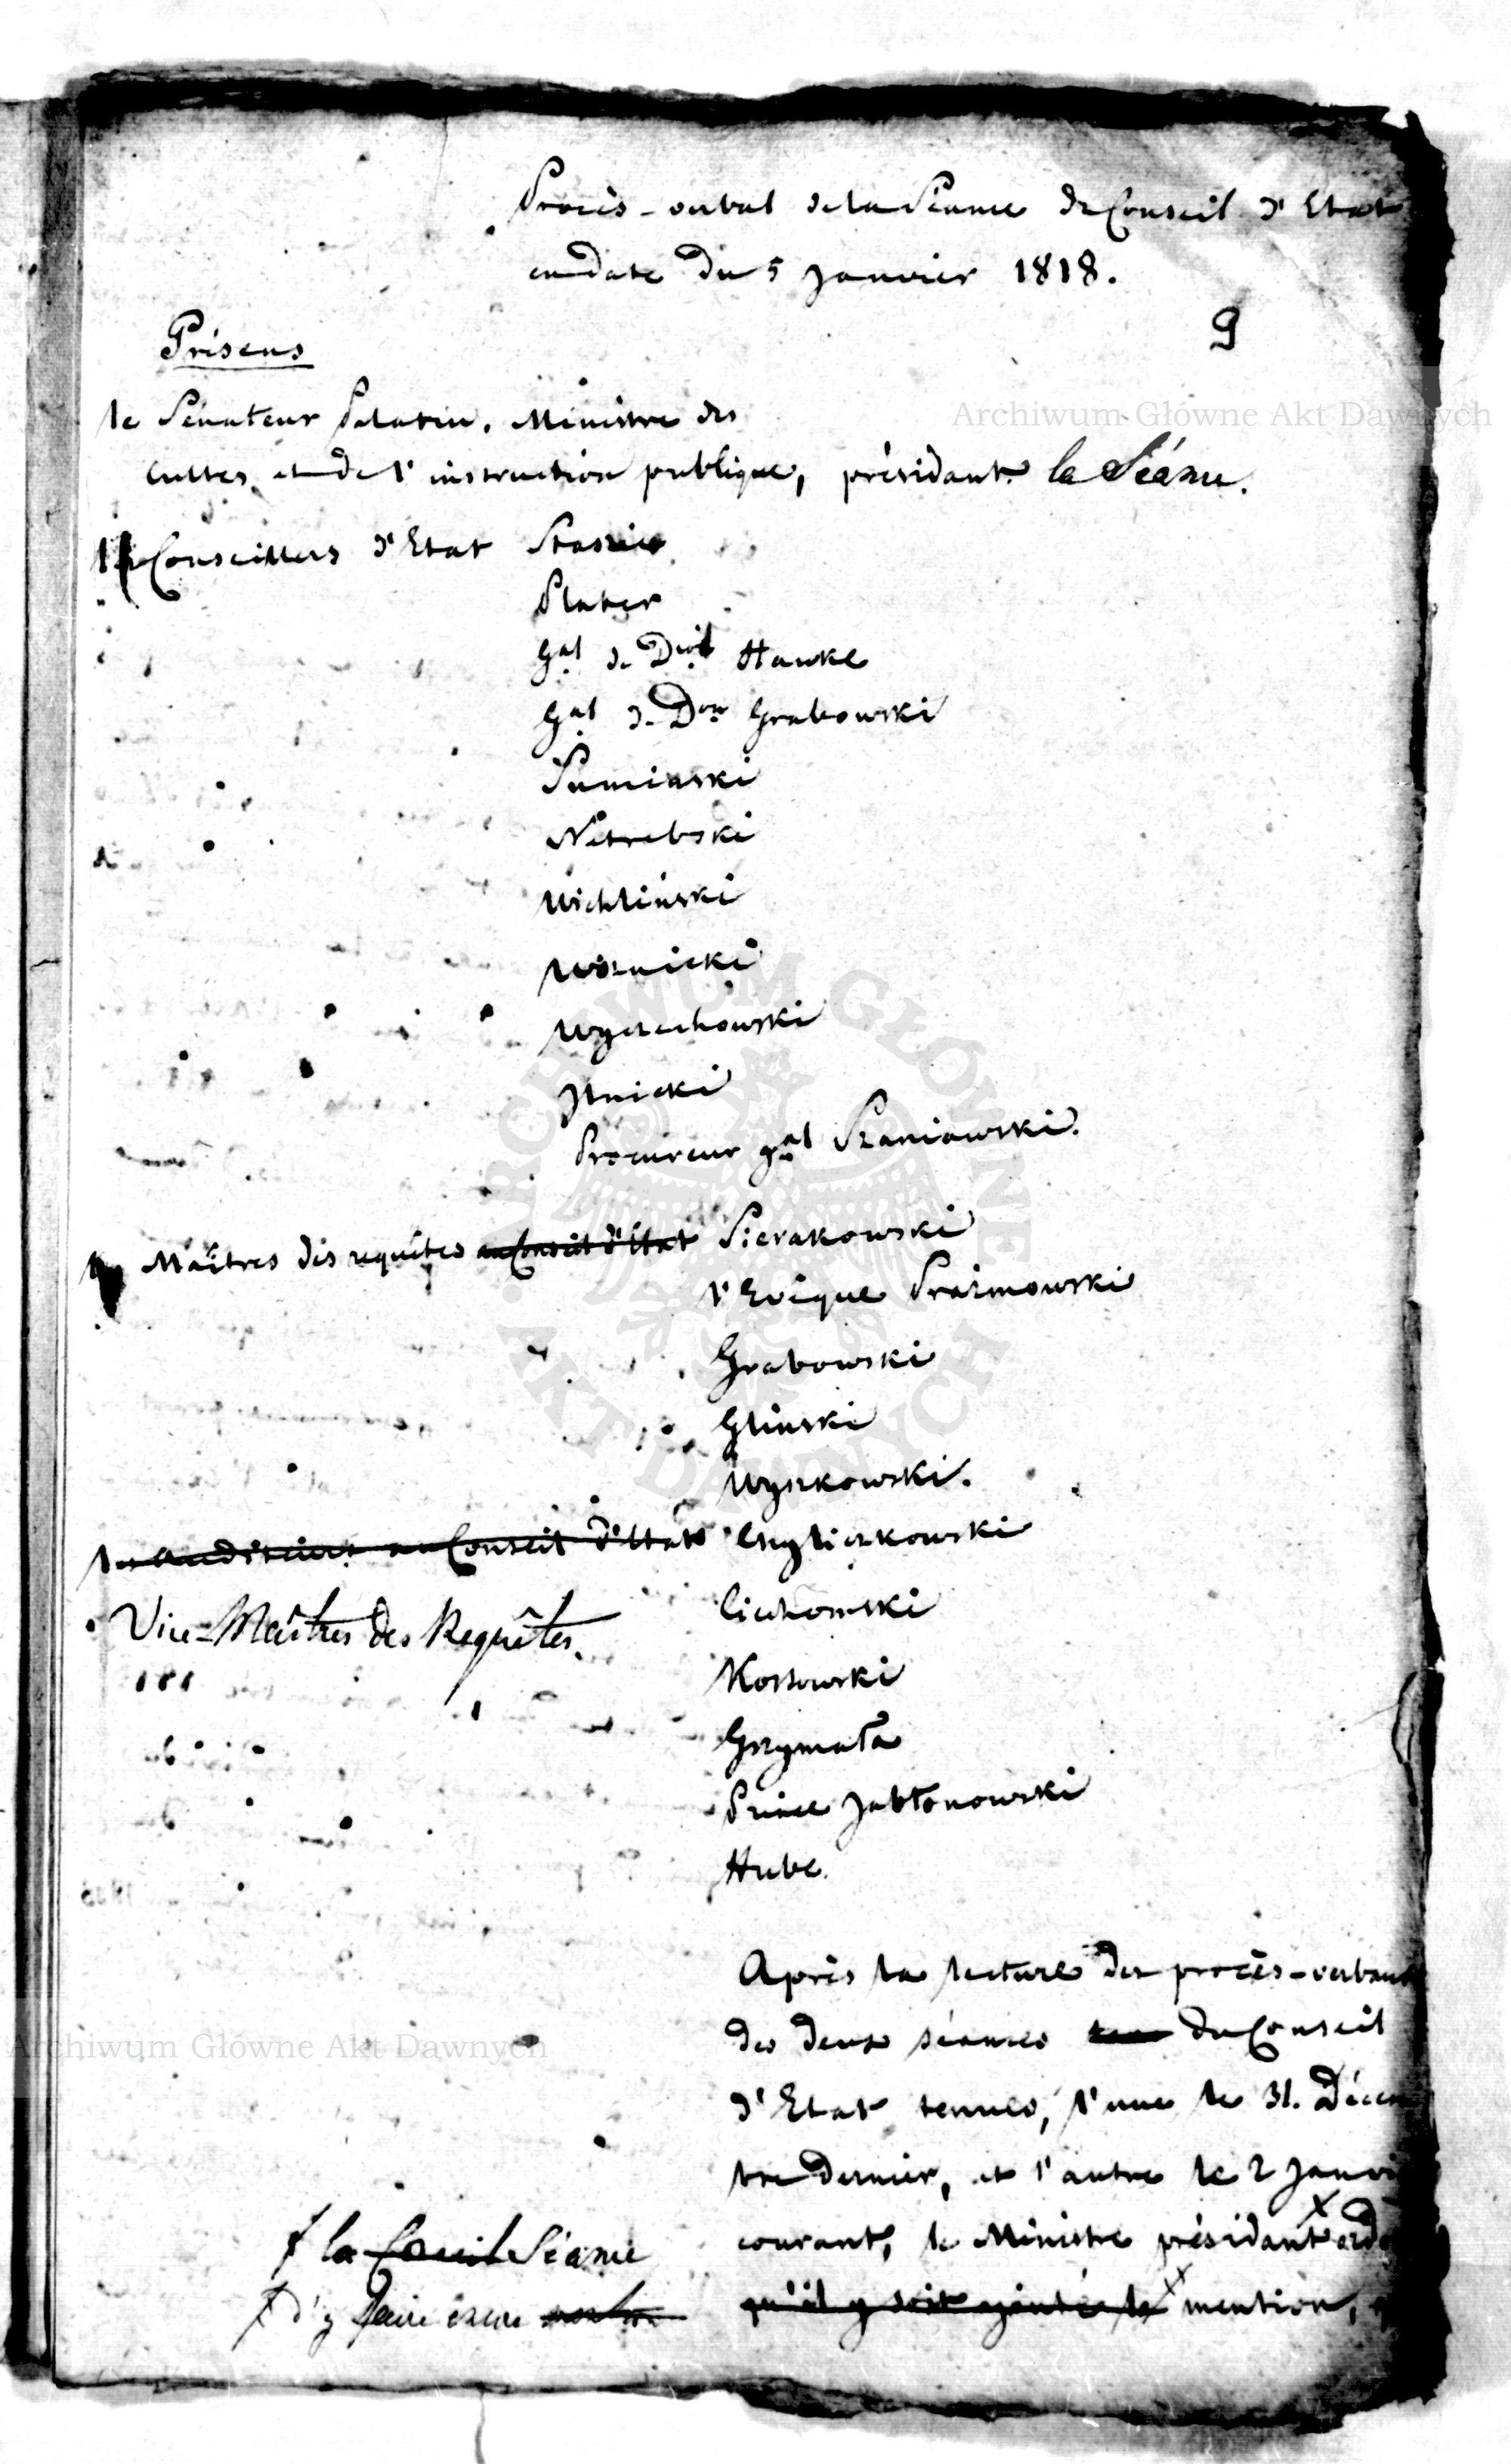 Procès-verbal de la Séance du Conseil d'Etat
en date du 5 Janvier 1818.
9
Présens
le Sénateur Palatin, Ministre des
cultes, et de l'instruction publique, présidant la Séance.
Conseillers d'Etat Staszic
Plater
Gal de Don Hauke
Gal de Don Grabowski
Sumiński
Netrebski
Wichliński
Woznicki
Wyczechowski
Jlnicki
Procureur gal Szaniawski.
Maîtres des requêtes au Conseil d'Etat Sierakowski
l'Evêque Prażmowski
Grabowski
Gliński
Wyszkowski.
les Auditeurs au Conseil d'Etat Chyliczkowski
Vice-Maîtres des Requêtes. Cichowski
Kossowski
Grzymała
Prince Jabłonowski
Hube.
Après la lecture des procès-verbaux
des deux séances du Conseil
d'Etat tenues, l'une le 31. Décem
bre dernier, et l'autre le 2 Janvi
courant, le Ministre présidant ordo
qu'il y soit ajoutée la mention,
la Séance
d'y faire encore
Archiwum Główne Akt Dawnych
ARCHIWUM GŁÓWNE AKT DAWNYCH
Archiwum Główne Akt Dawnych